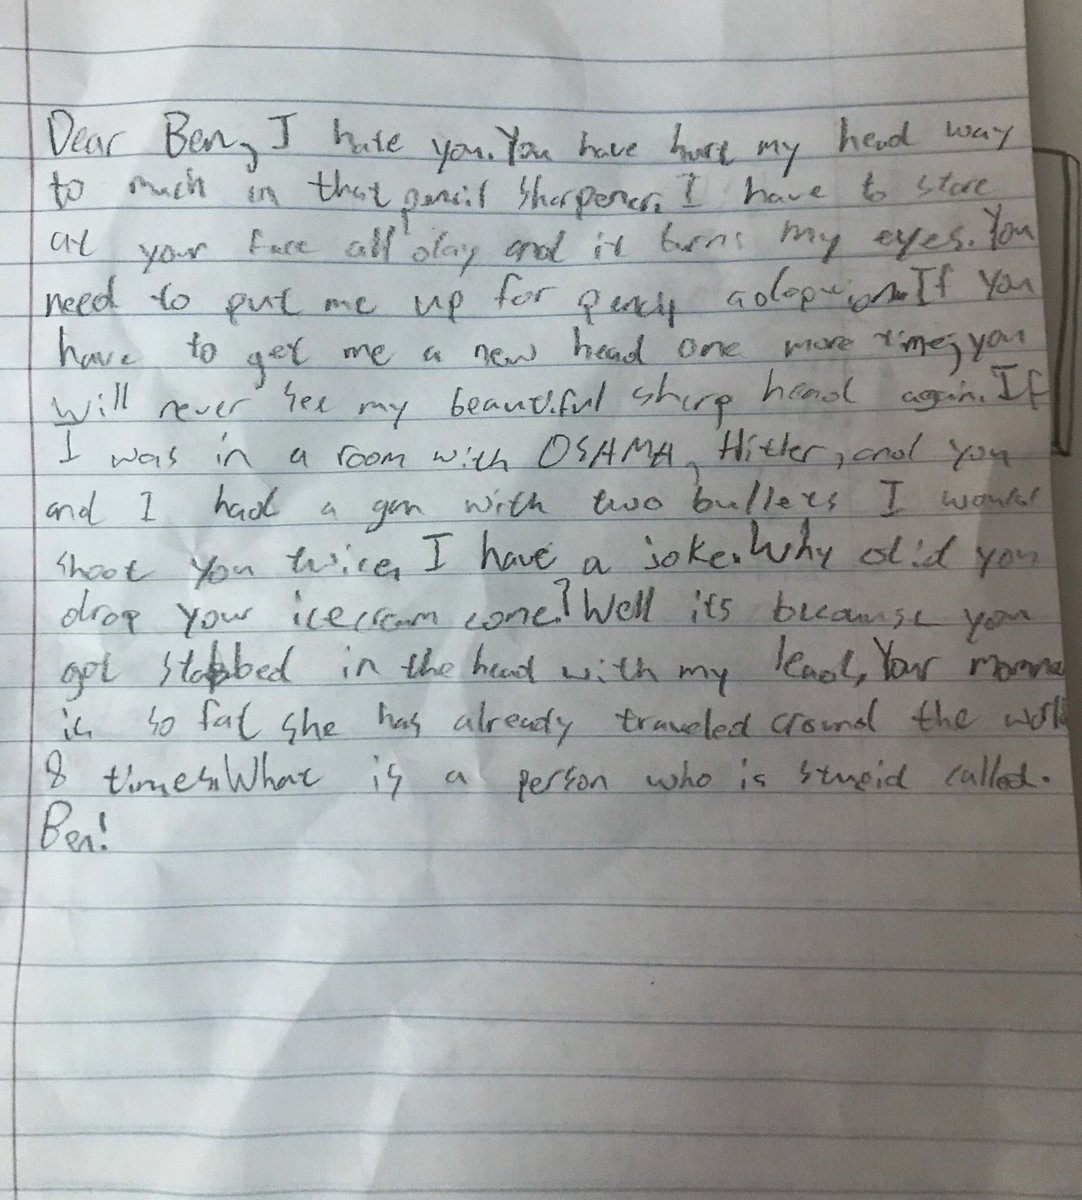 Dear Ben, I hate you. You have hurt my head way
to much in that pencil sharpener. I have to stare
at your face all day and it burns my eyes. You
need to put me up for adoption. If you
have to get me a new head one more time, you
will never see my beautiful sharp head again. If
I was in a room with OSAMA, Hitler, and you
and I had a gun with two bullets I would
shoot you twice. I have a joke. Why did you
drop your icecream cone? Well its because you
got stabbed in the head with my lead. Your momma
is so fat she has already traveled around the world
8 times. What is a person who is stupid called.
Ben!